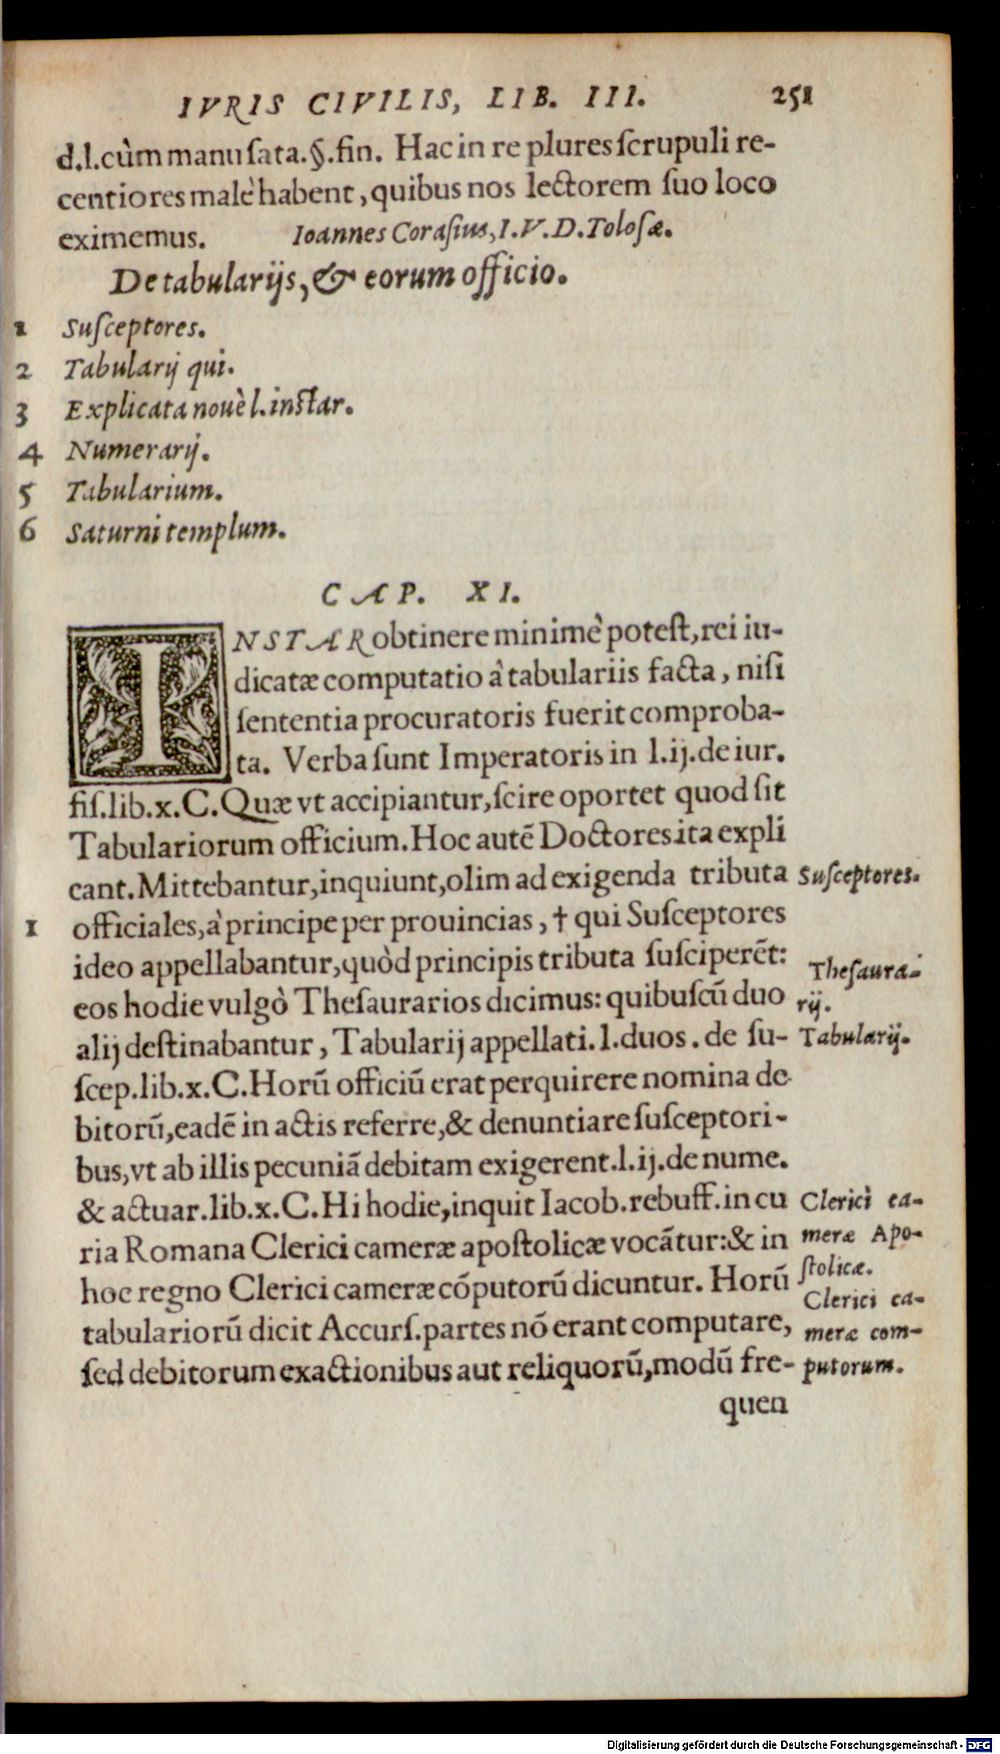 IVRIS CIVILIS, LIB. III. 251
d.l.cùm manu ſata.§.fin. Hac in re plures ſcrupuli re-
centiores malè habent, quibus nos lectorem ſuo loco
eximemus. Ioannes Coraſius, I.V.D.Toloſæ.
De tabularijs, & eorum officio.
1 Suſceptores.
2 Tabularij qui.
3 Explicata nouè l.inſtar.
4 Numerarij.
5 Tabularium.
6 Saturni templum.
CAP. XI.
INSTAR obtinere minimè poteſt, rei iu-
dicatæ computatio à tabulariis facta, niſi
ſententia procuratoris fuerit comproba-
ta. Verba ſunt Imperatoris in l.ij.de iur.
fiſ.lib.x.C.Quæ vt accipiantur, ſcire oportet quod ſit
Tabulariorum officium. Hoc autē Doctores ita expli
cant. Mittebantur, inquiunt, olim ad exigenda tributa
Suſceptores.
1 officiales, à principe per prouincias, † qui Suſceptores
ideo appellabantur, quòd principis tributa ſuſciperēt:
Theſaura-
eos hodie vulgò Theſaurarios dicimus: quibuſcū duo
rij.
alij deſtinabantur, Tabularij appellati. l.duos. de ſu-
Tabularij.
ſcep.lib.x.C.Horū officiū erat perquirere nomina de-
bitorū, eadē in actis referre, & denuntiare ſuſceptori-
bus, vt ab illis pecuniā debitam exigerent.l.ij.de nume.
& actuar.lib.x.C.Hi hodie, inquit Iacob.rebuff.in cu
Clerici ca-
ria Romana Clerici cameræ apoſtolicæ vocātur: & in
meræ Apo-
ſtolicæ.
hoc regno Clerici cameræ cōputorū dicuntur. Horū
Clerici ca-
tabulariorū dicit Accurſ.partes nō erant computare,
meræ com-
ſed debitorum exactionibus aut reliquorū, modū fre-
putorum.
quen
Digitalisierung gefördert durch die Deutsche Forschungsgemeinschaft - DFG